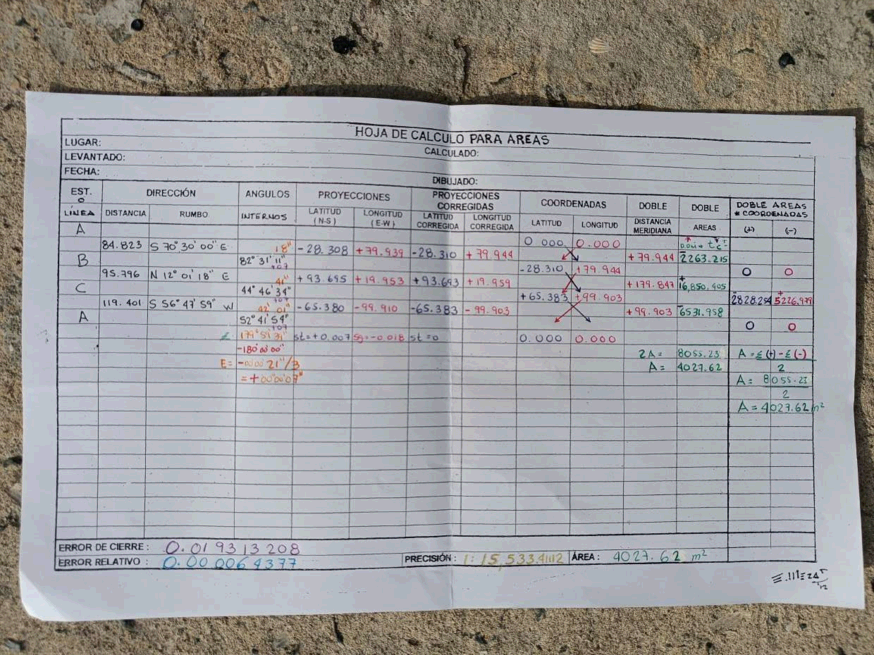 HOJA DE CALCULO PARA AREAS
LUGAR: CALCULADO:
LEVANTADO:
FECHA: DIBUJADO:
EST. DIRECCIÓN ANGULOS PROYECCIONES PROYECCIONES CORREGIDAS COORDENADAS DOBLE DOBLE DOBLE AREAS
O # COORDENADAS
LINEA DISTANCIA RUMBO INTERNOS LATITUD (N-S) LONGITUD (E-W) LATITUD CORREGIDA LONGITUD CORREGIDA LATITUD LONGITUD DISTANCIA MERIDIANA AREAS (+) (-)
A 0.000 0.000
84.823 S 70° 30' 00" E 18" -28.308 +79.939 -28.310 +79.944 +79.944 2263.215
B 82° 31' 11" -28.310 +79.944 0 0
95.796 N 12° 01' 18" E 41" +93.695 +19.953 +93.693 +19.959 +179.847 16,850.405
C 44° 46' 34" +65.383 +99.903 2828.254 5226.979
119.401 S 56° 47' 59" W 01" -65.380 -99.910 -65.383 -99.903 +99.903 6531.958
A 52° 41' 54" 0 0
st=+0.007 -0.018 st=0 0.000 0.000
-180°00'00" 2A= 8055.23 A= Σ(+)-Σ(-)
E= -00°00'21"/3 A= 4027.62 2
=+00°00'07" A= 8055.23
2
A=4027.62 m²
ERROR DE CIERRE: 0.019313208
PRECISIÓN: 1:15,533.4112 ÁREA: 4027.62 m²
ERROR RELATIVO: 0.000064377